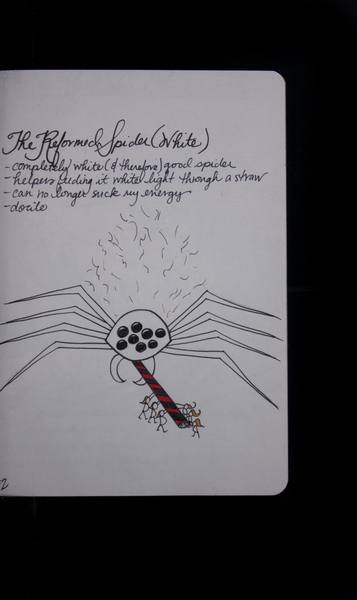 The Reformed Spider (White)
- completely white (& therefore) good spider
- helpers feeding it white light through a straw
- can no longer suck my energy
- docile
2